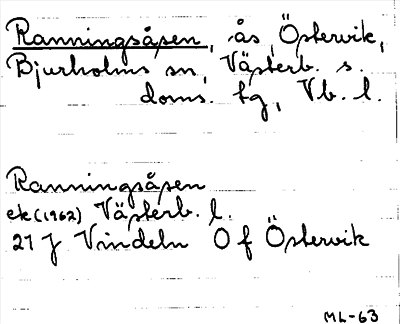 Ranningsåsen, ås, Östervik,
Bjurholms sn, Västerb. s.
doms. tg, Vb. l.
Ranningsåsen
ek (1962) Västerb. l.
21 J Vindeln 0 f Östervik
ML-63